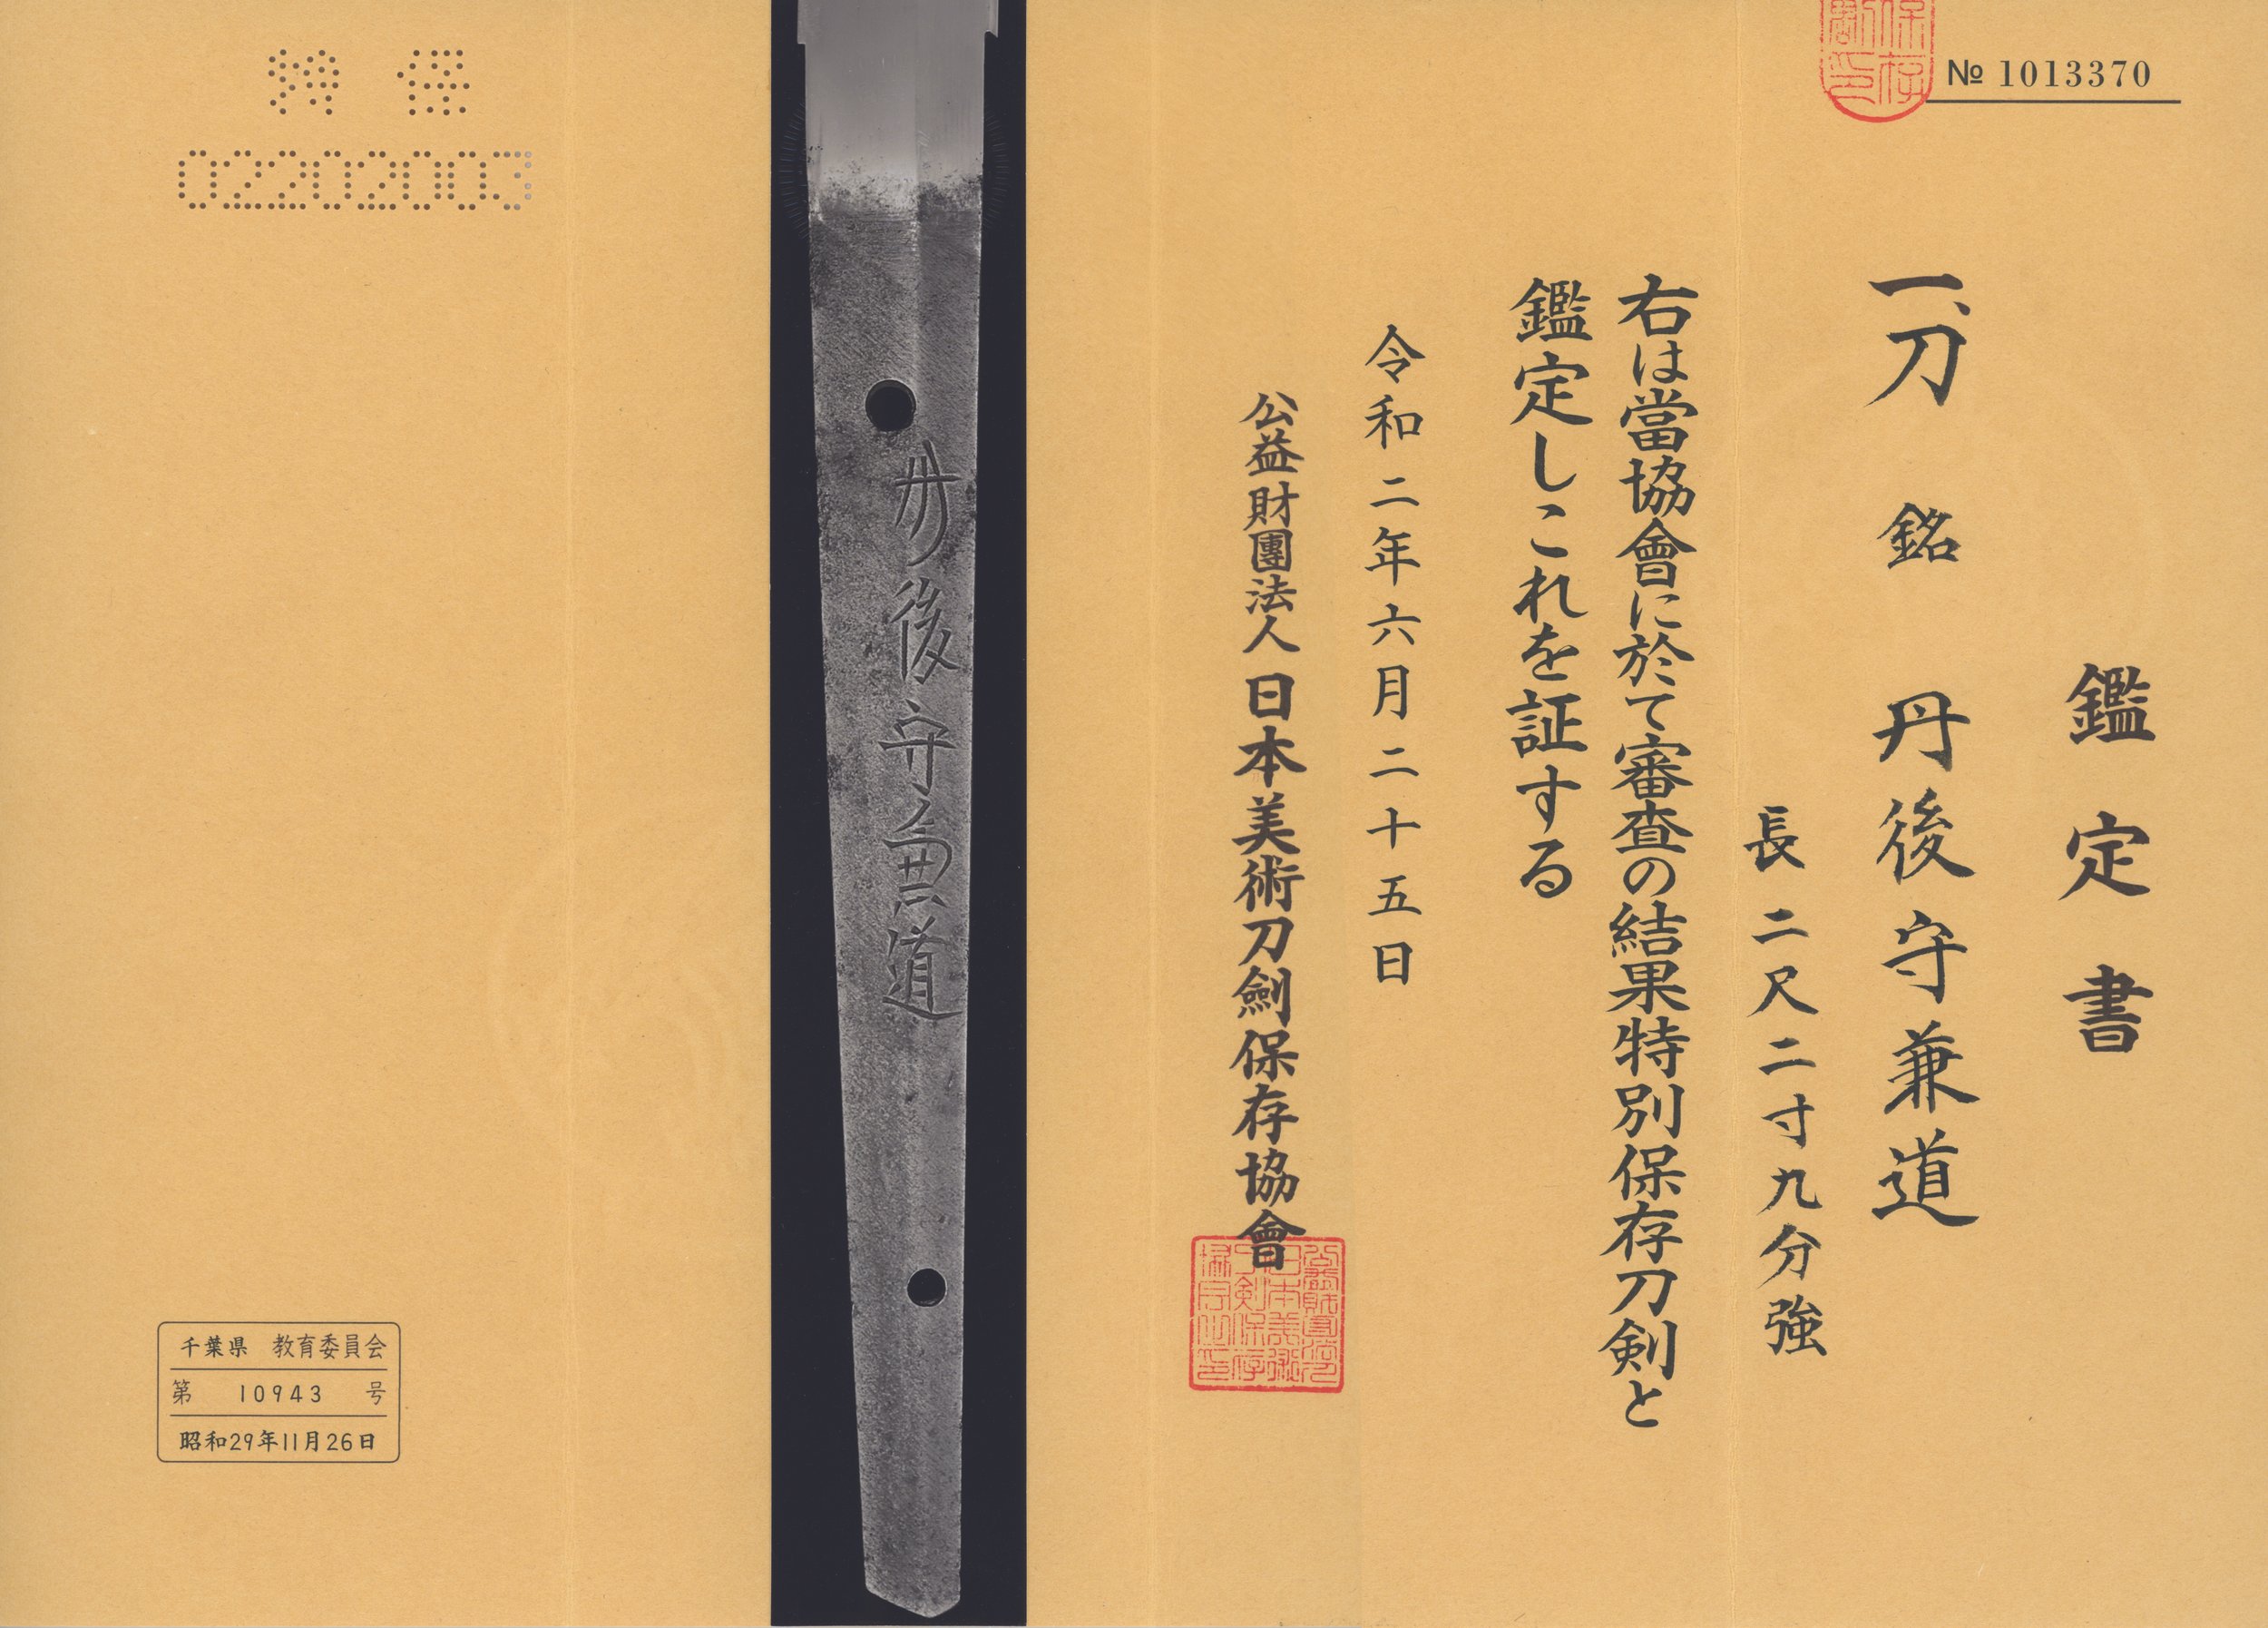 № 1013370
鑑定書
一、刀 銘 丹後守兼道
長二尺二寸九分強
右は當協會に於て審査の結果特別保存刀剣と
鑑定しこれを証する
令和二年六月二十五日
公益財團法人 日本美術刀劍保存協會
丹後守兼道
特保
02202003
千葉県 教育委員会
第 10943 号
昭和29年11月26日